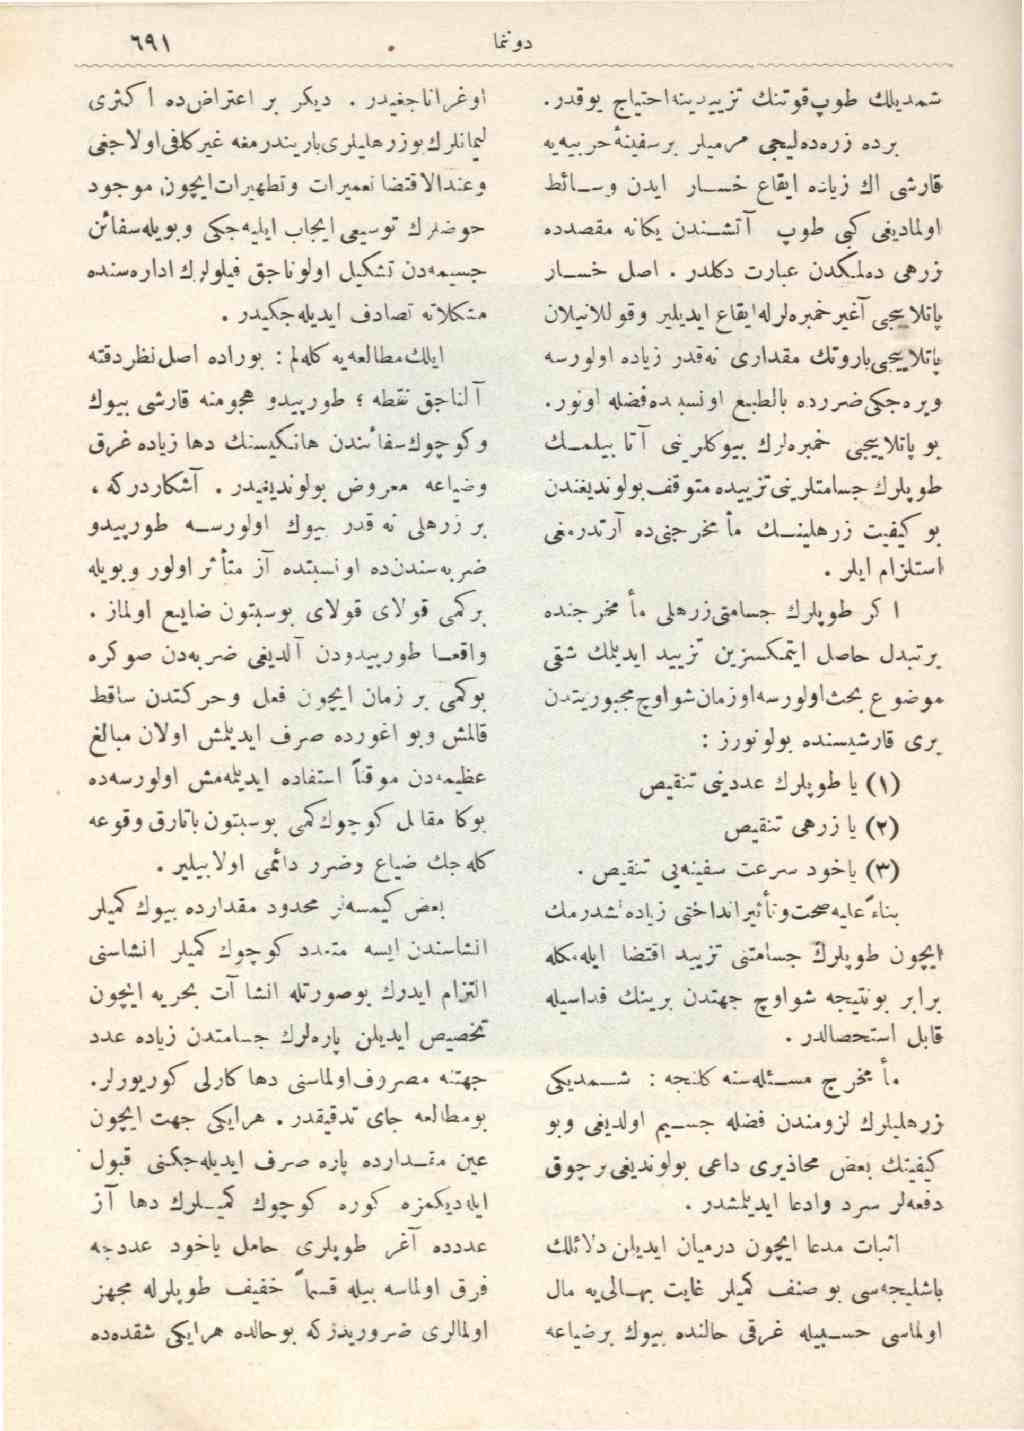 دوننما
٦٩١
شمديلك طوپ قوتنك تزييدينه احتياج يوقدر.
برده زره‌ده‌ليجی مرميلر برسفينهٔ حربيه‌يه
قارشی اك زياده ايقاع خسار ايدن وسائط
اولمادیغی كبی طوپ آتشندن يكانه مقصدده
زرهی ده‌لمكدن عبارت دكلدر . اصل خسار
پاتلاييجی آغير خمبره‌لرله ايقاع ايديلير وقوللانيلان
پاتلاييجی باروتك مقداری نه‌قدر زياده اولورسه
ويره‌جكی ضررده بالطبع اونسبتده فضله اونور.
بو پاتلاييجی خمبره‌لرك بيوكلرينی آتا بيلمك
طوپلرك جسامتلرينی تزييده متوقف بولونديغندن
بو كيفيت زرهلينك مأ مخرجنی‌ده آرتدرمغی
استلزام ايلر .
ا كر طوپلرك جسامتی زرهلی مأ مخرجنده
برتبدل حاصل ايتمكسزين تزييد ايديلمك شقی
موضوع بحث اولورسه اوزمان شو اوچ مجبوريتدن
بری قارشيسنده بولونورز :
(١) يا طوپلرك عددينی تنقيص
(٢) يا زرهی تنقيص
(٣) ياخود سرعت سفينه‌یی تنقيص .
بناءً عليه صحت وتأثير انداختی زياده‌لشدرمك
ايچون طوپلرك جسامتنی تزييد اقتضا ايله‌مكله
برابر بونتيجه شو اوچ جهتدن برينك فداسيله
قابل استحصالدر .
مأ مخرج مسئله‌سنه كلنجه : شمديكی
زرهليلرك لزومندن فضله جسيم اولديغی وبو
كيفيتك بعض محاذيری داعی بولونديغی برچوق
دفعه‌لر سرد وادعا ايديلمشدر .
اثبات مدعا ايچون درميان ايديلن دلائلك
باشليجه‌سی بو صنف كميلر غايت بهالی‌يه مال
اولماسی حسبيله غرقی حالنده بيوك برضياعه
اوغراناجغيدر . ديكر بر اعتراض‌ده اكثری
ليمانلرك بو زرهليلری باريندرمغه غيركافی اولاجغی
وعندالاقتضا تعميرات وتطهيرات ايچون موجود
حوضلرك توسيعی ايجاب ايليه‌جكی وبويله سفائن
جسيمه‌دن تشكيل اولوناجق فيلولرك اداره‌سنده
مشكلاته تصادف ايديله‌جكيدر .
ايلك مطالعه‌يه كله‌لم : بوراده اصل نظر دقته
آلناجق نقطه ؛ طورپيدو هجومنه قارشی بيوك
وكوچوك سفائندن هانكيسنك دها زياده غرق
وضياعه معروض بولونديغيدر . آشكاردركه ،
بر زرهلی نه قدر بيوك اولورسه طورپيدو
ضربه‌سندن‌ده اونسبتده آز متأثر اولور وبويله
بركمی قولای قولای بوسبتون ضايع اولماز .
واقعا طورپيدودن آلديغی ضربه‌دن صوكره
بوكمی بر زمان ايچون فعل وحركتدن ساقط
قالمش وبو اغورده صرف ايديلمش اولان مبالغ
عظيمه‌دن موقتاً استفاده ايديله‌مش اولورسه‌ده
بوكا مقابل كوچوك كمی بوسبتون باتارق وقوعه
كله جك ضياع وضرر دائمی اولابيلير .
بعض كيمسه‌لر محدود مقدارده بيوك كميلر
انشاسندن ايسه متعدد كوچوك كميلر انشاسنی
التزام ايدرك بوصورتله انشا آت بحريه ايچون
تخصيص ايديلن پاره‌لرك جسامتدن زياده عدد
جهتنه مصروف اولماسنی دها كارلی كوريورلر.
بومطالعه جای تدقيقدر . هرايكی جهت ايچون
عين مقدارده پاره صرف ايديله‌جكنی قبول
ايله‌ديكمزه كوره كوچوك كميلرك دها آز
عددده آغر طوپلری حامل ياخود عددجه
فرق اولماسه بيله قسماً خفيف طوپلرله مجهز
اولمالری ضروريدركه بوحالده هرايكی شقده‌ده